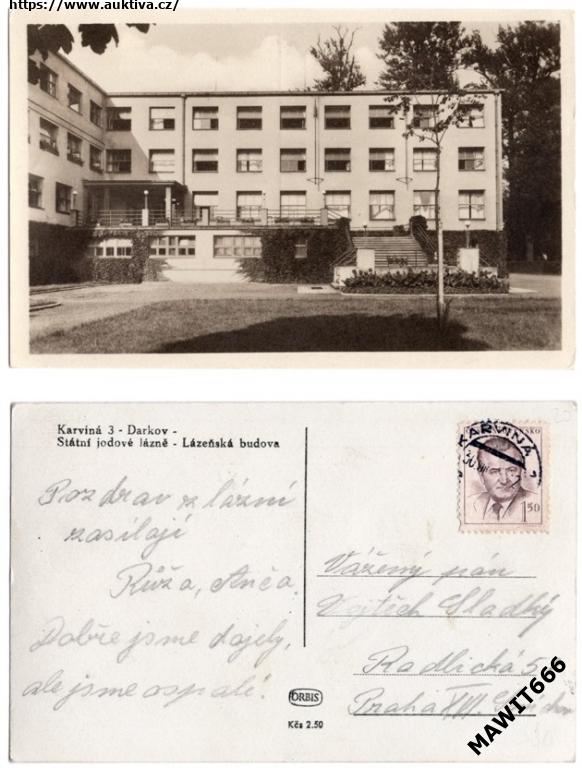 https://www.auktiva.cz/
Karviná 3 - Darkov -
Státní jodové lázně - Lázeňská budova
Pozdrav z lázní
zasílají
Růža, Anča.
Dobře jsme dojely,
ale jsme ospalé.
ORBIS
Kčs 2.50
KARVINÁ
1.50
Vážený pán
Vojtěch Sladký
Radlická 5
Praha XVI.
MAWIT666